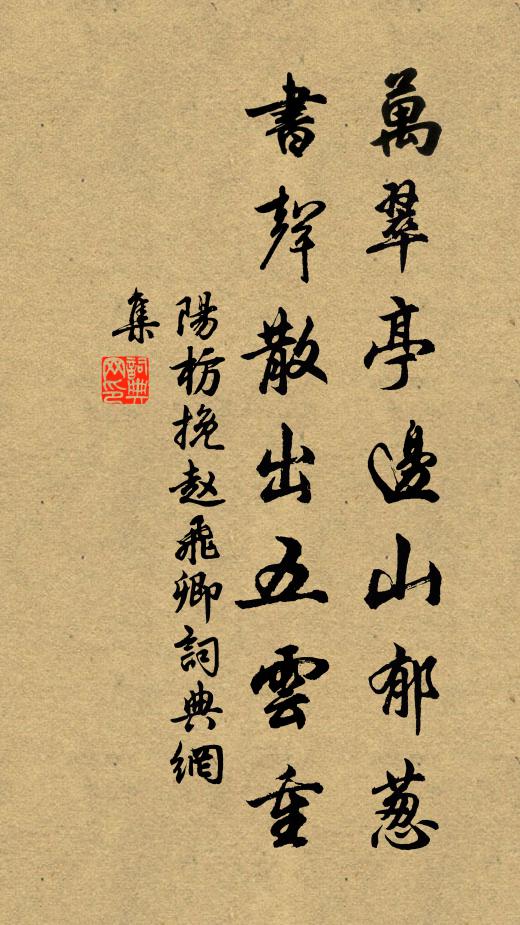 萬翠亭邊山郁葱
書聲散出五雲重
陽枋挽赵飛卿詞典網
集
詞典網印